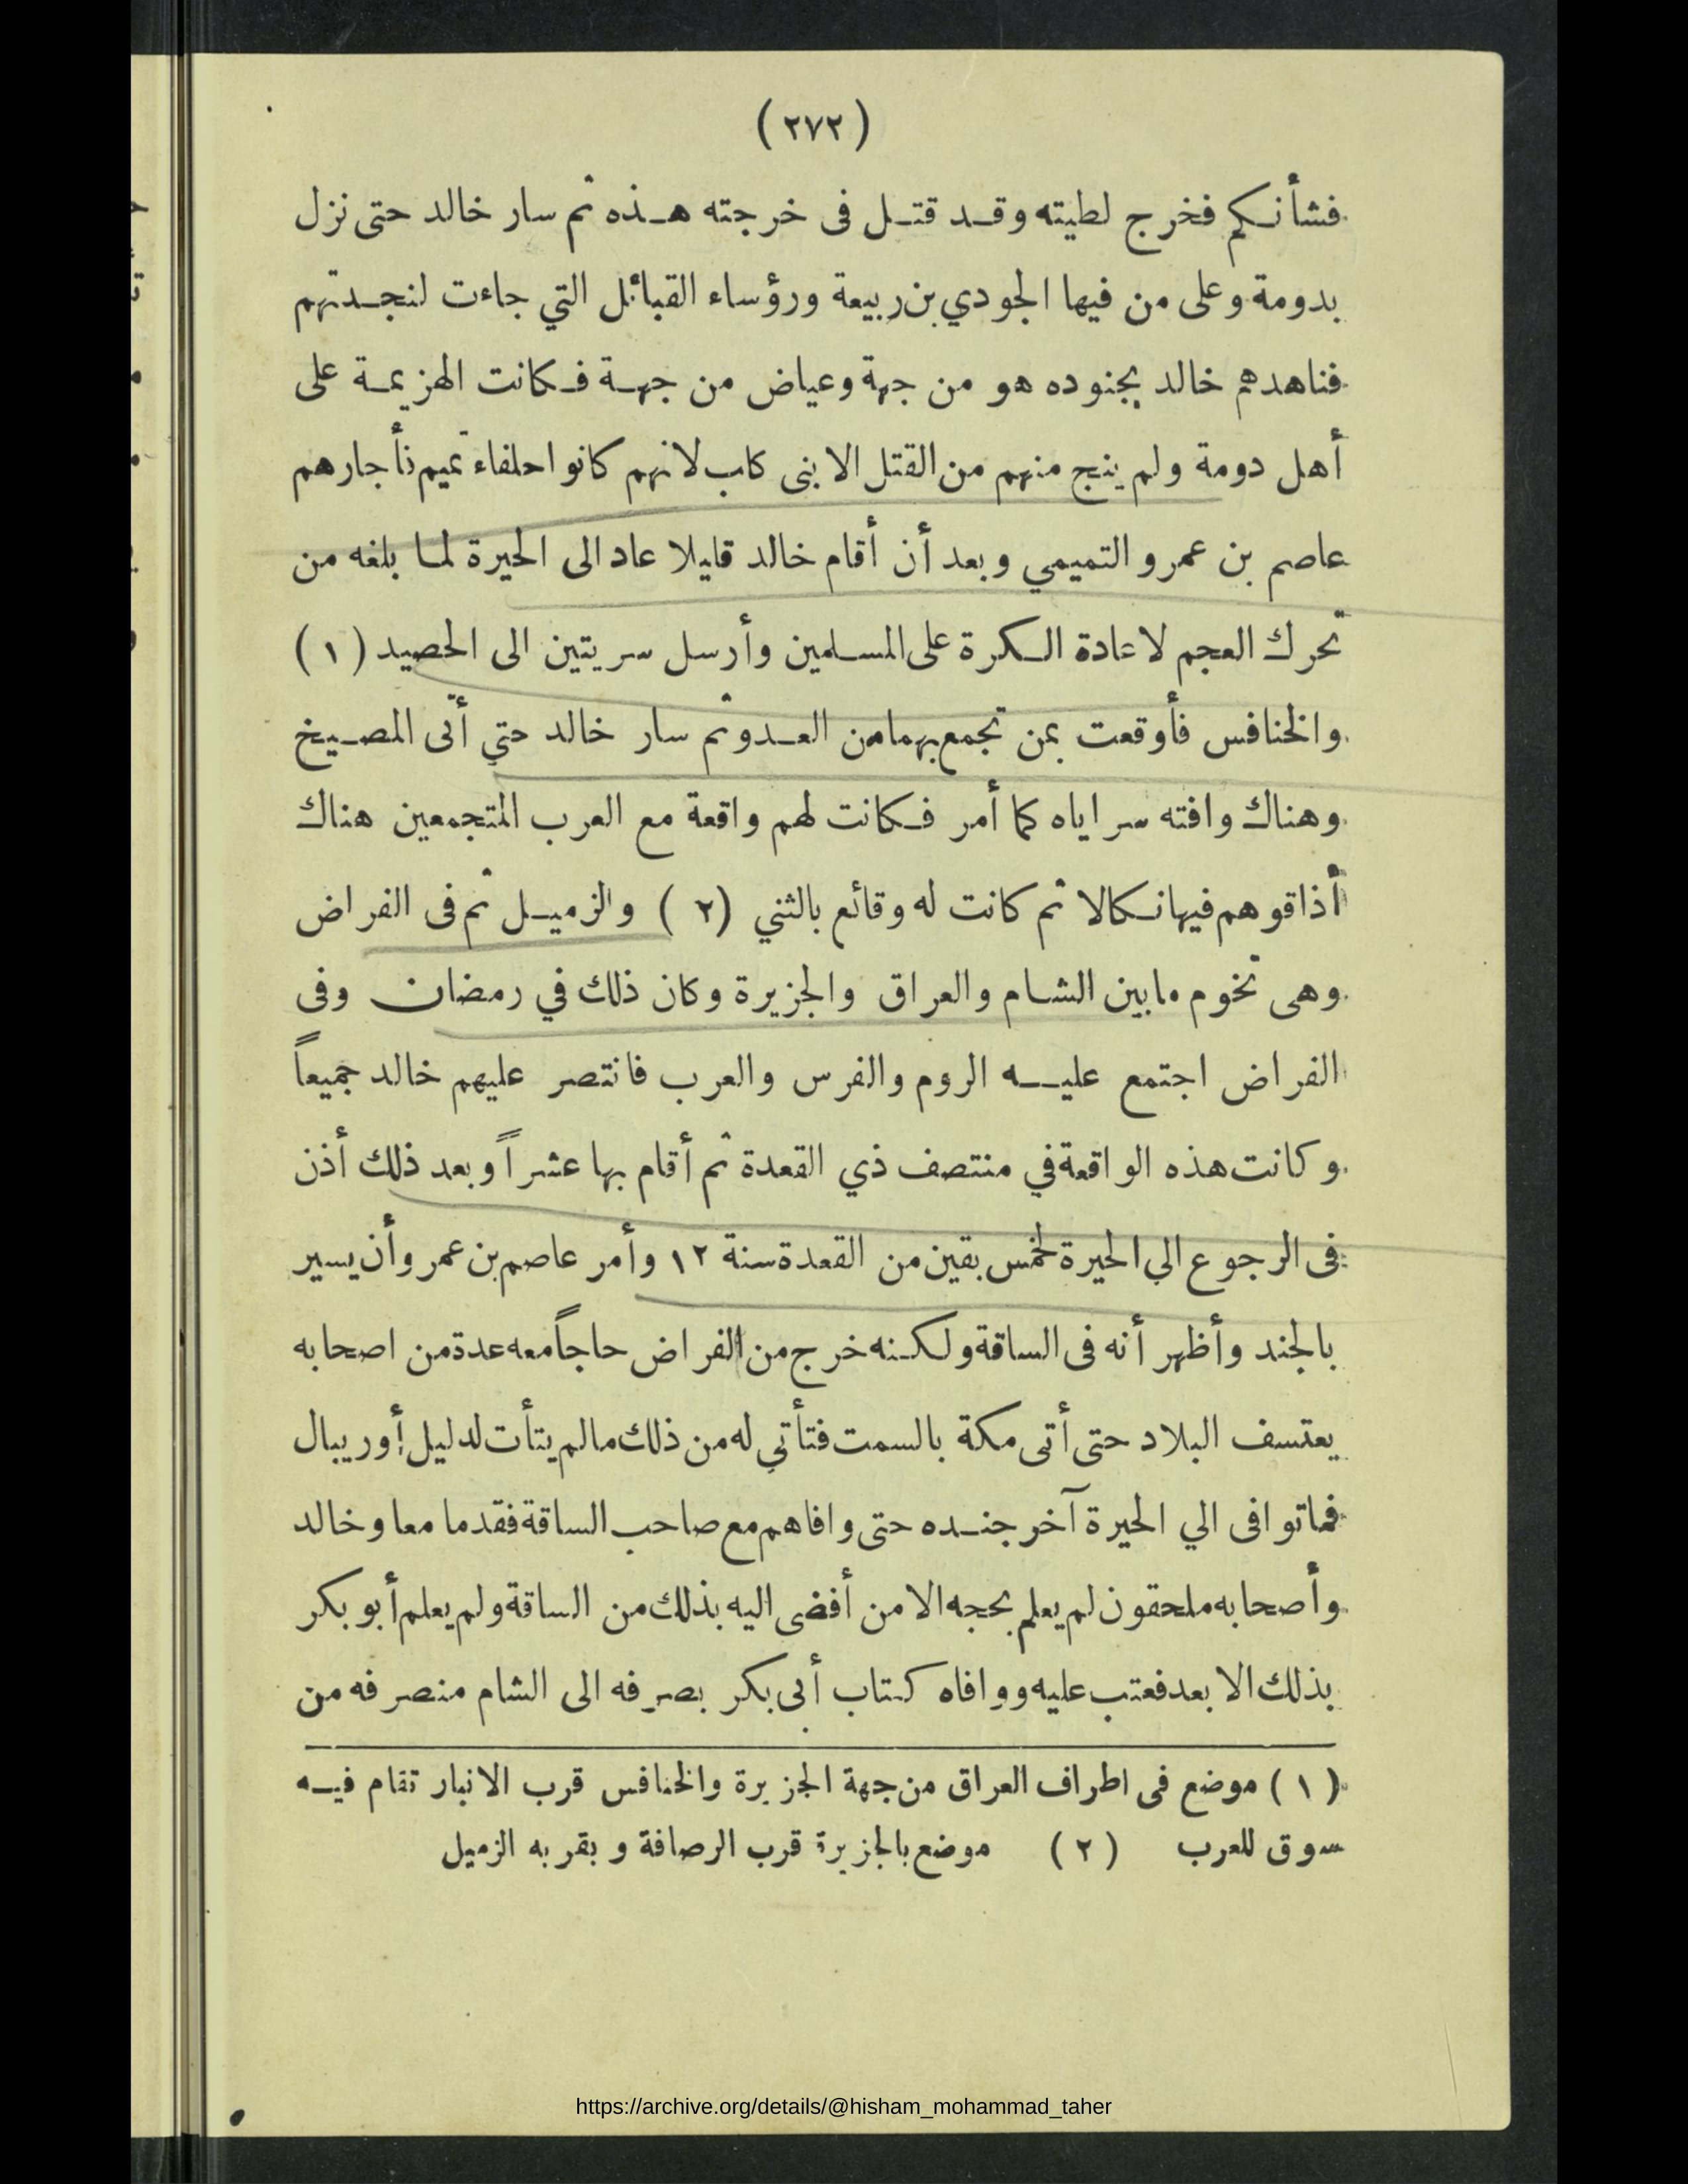 (٢٧٢)
فشأنكم فخرج لطيته وقد قتل فى خرجته هذه ثم سار خالد حتى نزل
بدومة وعلى من فيها الجودي بن ربيعة ورؤساء القبائل التي جاءت لنجدتهم
فناهدهم خالد بجنوده هو من جهة وعياض من جهة فكانت الهزيمة على
أهل دومة ولم ينج منهم من القتل الا بنى كلب لانهم كانوا حلفاء تميم فأجارهم
عاصم بن عمرو التميمي وبعد أن أقام خالد قليلا عاد الى الحيرة لما بلغه من
تحرك العجم لاعادة الكرة على المسلمين وأرسل سريتين الى الحصيد (١)
والخنافس فأوقعت بمن تجمع بهما من العدو ثم سار خالد حتي أتى المصيخ
وهناك وافته سراياه كما أمر فكانت لهم واقعة مع العرب المتجمعين هناك
أذاقوهم فيها نكالا ثم كانت له وقائع بالثني (٢) والزميل ثم فى الفراض
وهى تخوم ما بين الشام والعراق والجزيرة وكان ذلك في رمضان وفى
الفراض اجتمع عليه الروم والفرس والعرب فانتصر عليهم خالد جميعاً
وكانت هذه الواقعة في منتصف ذي القعدة ثم أقام بها عشراً وبعد ذلك أذن
فى الرجوع الي الحيرة لخمس بقين من القعدة سنة ١٢ وأمر عاصم بن عمرو أن يسير
بالجند وأظهر أنه فى الساقة ولكنه خرج من الفراض حاجاً معه عدة من اصحابه
يعتسف البلاد حتى أتى مكة بالسمت فتأتي له من ذلك مالم يتأت لدليل أو ريبال
فما توافى الي الحيرة آخر جنده حتى وافاهم مع صاحب الساقة فقدما معا وخالد
وأصحابه ملحقون لم يعلم بحجه الا من أفضى اليه بذلك من الساقة ولم يعلم أبو بكر
بذلك الا بعد فعتب عليه ووافاه كتاب أبى بكر بصرفه الى الشام منصرفه من
(١) موضع فى اطراف العراق من جهة الجزيرة والخنافس قرب الانبار تقام فيه
سوق للعرب (٢) موضع بالجزيرة قرب الرصافة و بقربه الزميل
https://archive.org/details/@hisham_mohammad_taher